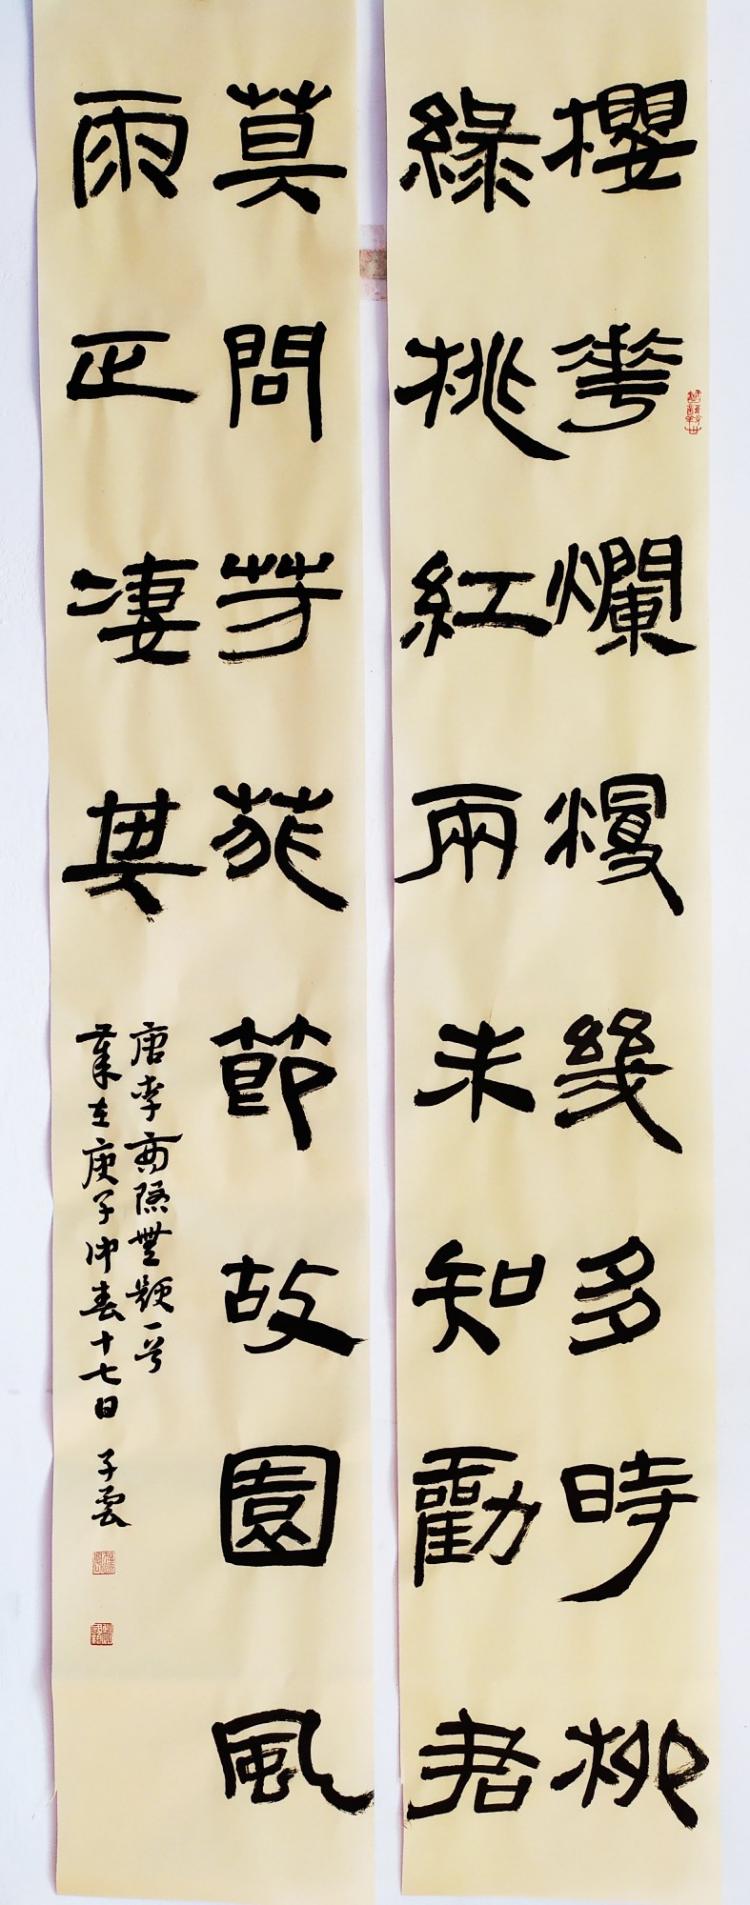 櫻華爛熳幾多時柳
綠桃紅兩未知勸君
莫問芳菲節故園風
雨正淒其
唐李商隱無題一首
在庚子仲春十七日 子雲